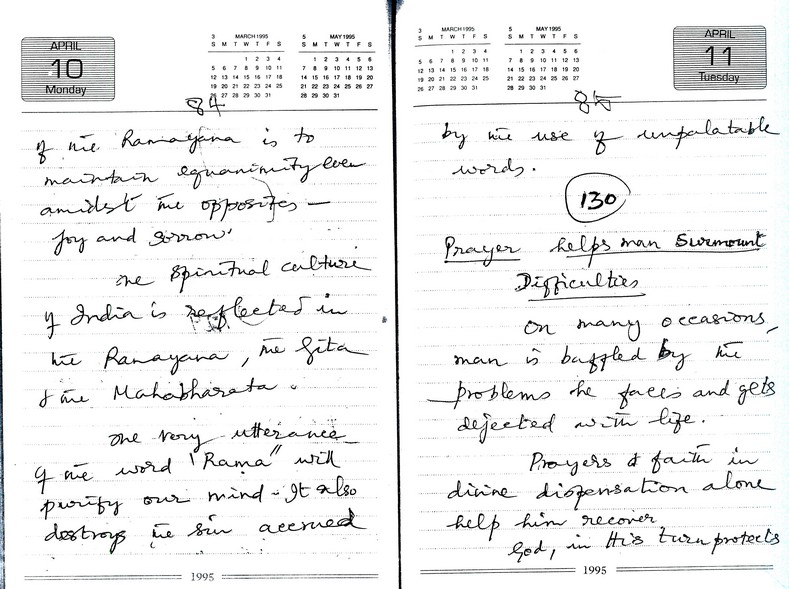 APRIL
10
Monday
3 MARCH 1995
S M T W T F S
1 2 3 4
5 6 7 8 9 10 11
12 13 14 15 16 17 18
19 20 21 22 23 24 25
26 27 28 29 30 31
5 MAY 1995
S M T W T F S
1 2 3 4 5 6
7 8 9 10 11 12 13
14 15 16 17 18 19 20
21 22 23 24 25 26 27
28 29 30 31
84
of the Ramayana is to
maintain equanimity even
amidst the opposites —
Joy and sorrow.
The Spiritual culture
of India is reflected in
the Ramayana, the Gita
& the Mahabharata.
The very utterance
of the word "Rama" will
purify our mind. It also
destroys the sin accrued
1995
3 MARCH 1995
S M T W T F S
1 2 3 4
5 6 7 8 9 10 11
12 13 14 15 16 17 18
19 20 21 22 23 24 25
26 27 28 29 30 31
5 MAY 1995
S M T W T F S
1 2 3 4 5 6
7 8 9 10 11 12 13
14 15 16 17 18 19 20
21 22 23 24 25 26 27
28 29 30 31
APRIL
11
Tuesday
85
by the use of unpalatable
words.
130
Prayer helps man Surmount
Difficulties
On many occasions,
man is baffled by the
problems he faces and gets
dejected with life.
Prayers & faith in
divine dispensation alone
help him recover.
God, in His turn protects
1995